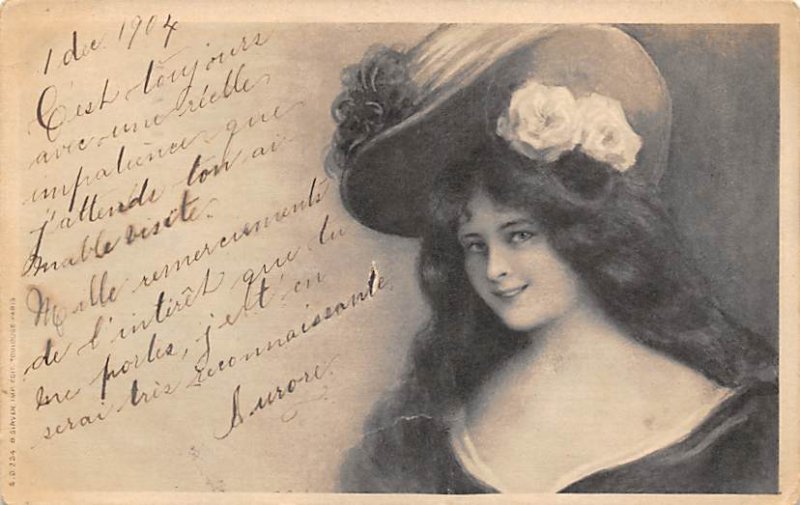 1 dec. 1904
C'est toujours
avec une réelle
impatience que
j'attends ton ai-
mable visite.
Mille remerciements
de l'intérêt que tu
me portes, j et t'en
serai très reconnaissante.
Aurore.
B. SIRVEN IMP. EDIT. TOULOUSE-PARIS